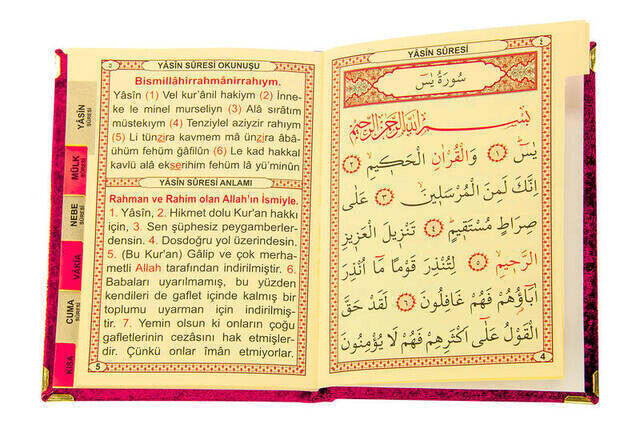 YÂSÎN SÛRESİ
MÜLK SÛRESİ
NEBE SÛRESİ
VÂKIA
CUMA SÛRESİ
KISA
٥
YÂSİN SÛRESİ OKUNUŞU
Bismillâhirrahmânirrahıym.
Yâsîn (1) Vel kur'ânil hakiym (2) İnne-
ke le minel murseliyn (3) Alâ sırâtım
müstekıym (4) Tenziylel aziyzir rahıym
(5) Li tünzira kavmem mâ ünzira âbâ-
ühüm fehüm gâfilûn (6) Le kad hakkal
kavlü alâ ekserihim fehüm lâ yü'minûn
YÂSİN SÛRESİ ANLAMI
Rahman ve Rahim olan Allah'ın İsmiyle.
1. Yâsîn, 2. Hikmet dolu Kur'an hakkı
için, 3. Sen şüphesiz peygamberler-
densin. 4. Dosdoğru yol üzerindesin.
5. (Bu Kur'an) Gâlip ve çok merha-
metli Allah tarafından indirilmiştir. 6.
Babaları uyarılmamış, bu yüzden
kendileri de gaflet içinde kalmış bir
toplumu uyarman için indirilmiş-
tir. 7. Yemin olsun ki onların çoğu
gafletlerinin cezâsını hak etmişler-
dir. Çünkü onlar îmân etmiyorlar.
5
YÂSİN SÛRESİ
٤
سُورَةُ يٰسٓ
بِسْمِ اللّٰهِ الرَّحْمٰنِ الرَّحِيمِ
يٰسٓ ﴿١﴾ وَالْقُرْاٰنِ الْحَكِيمِ ﴿٢﴾
اِنَّكَ لَمِنَ الْمُرْسَلِينَ ﴿٣﴾ عَلٰى
صِرَاطٍ مُسْتَقِيمٍ ﴿٤﴾ تَنْزِيلَ الْعَزِيزِ
الرَّحِيمِ ﴿٥﴾ لِتُنْذِرَ قَوْمًا مَٓا اُنْذِرَ
اٰبَٓاؤُهُمْ فَهُمْ غَافِلُونَ ﴿٦﴾ لَقَدْ حَقَّ
الْقَوْلُ عَلٰٓى اَكْثَرِهِمْ فَهُمْ لَا يُؤْمِنُونَ
4